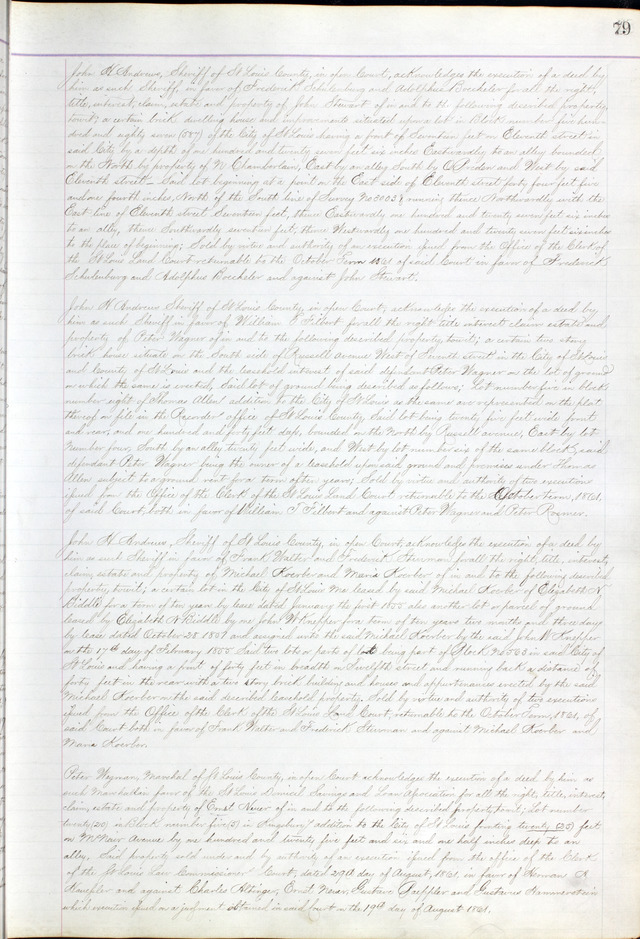 79
John H Andrews, Sheriff of St Louis County, in open Court, acknowledges the execution of a deed by
him as such Sheriff, in favor of Frederick Schulenburg and Adolphus Boeckeler for all the right,
title, interest, claim, estate and property of John Stewart of in and to the following described property
towit; a certain brick dwelling house and improvements situated upon a lot in Block number five hun-
dred and eighty seven (587) of the City of St Louis having a front of Seventeen feet on Eleventh street in
said City by a depth of one hundred and twenty seven feet six inches Eastwardly to an alley bounded
on the North by property of N Chamberlain, East by an alley South by and West by said
Eleventh street — Said lot beginning at a point on the East side of Eleventh street forty four feet five
and one fourth inches, North of the South line of Survey No 3008 & running thence Northwardly with the
East line of Eleventh street Seventeen feet, thence Eastwardly one hundred and twenty seven feet six inches
to an alley, thence Southwardly seventeen feet, thence Westwardly one hundred and twenty seven feet six inches
to the place of beginning; Sold by notice and authority of an execution issued from the Office of the Clerk of
the St Louis Land Court returnable to the October Term 1861 of said Court in favor of Frederick
Schulenburg and Adolphus Boeckeler and against John Stewart.
John H Andrews Sheriff of St Louis County, in open Court, acknowledges the execution of a deed by
him as such Sheriff in favor of William T Filbert for all the right title interest claim estate and
property of Peter Wagner of in and to the following described property, towit; a certain two story
brick house situate on the South side of Russell avenue West of Seventh street in the City of St Louis
and County of St Louis and the leasehold interest of said defendant Peter Wagner in the lot of ground
on which the same is erected, Said lot of ground being described as follows; Lot number five in block
number eight of Thomas Allen addition to the City of St Louis as the same are represented on the plat
thereof on file in the Recorder office of St Louis County, Said lot being twenty five feet wide front
and rear, and one hundred and forty feet deep, bounded on the North by Russell avenue, East by lot
number four, South by an alley twenty feet wide, and West by lot number six of the same block; said
defendant Peter Wagner being the owner of a leasehold upon said ground and premises under Thomas
Allen subject to a ground rent for a term of ten years; Sold by notice and authority of two executions
issued from the Office of the Clerk of the St Louis Land Court returnable to the October term, 1861,
of said Court, both in favor of William T Filbert and against Peter Wagner and Peter Roemer.
John H Andrews, Sheriff of St Louis County, in open Court, acknowledges the execution of a deed by
him as such Sheriff in favor of Frank Walter and Frederick Steuman, for all the right, title, interest,
claim, estate and property of Michael Koerber and Maria Koerber of in and to the following described
property, towit; a certain lot in the City of St Louis Mo leased by said Michael Koerber of Elizabeth N
Biddle for a term of ten years by lease dated January the first also another lot or parcel of ground
leased by Elizabeth N Biddle by me John W Knepper for a term of ten years two months and three days
by lease dated October 28 and assigned unto the said Michael Koerber by the said John W Knepper
on the 17th day of February Said two lots or parts of lots being part of Block No in said City of
St Louis and having a front of forty feet in breadth on Twelfth street and running back a distance of
forty feet in the rear with a two story brick building and house and appurtenances erected by the said
Michael Koerber on the said described leasehold property. Sold by notice and authority of two executions
issued from the Office of the Clerk of the St Louis Land Court, returnable to the October Term, 1861, of
said Court both in favor of Frank Walter and Frederick Steuman and against Michael Koerber and
Maria Koerber.
Peter Weyman, Marshal of St Louis County, in open Court acknowledges the execution of a deed by him as
such Marshal in favor of the St Louis Savings and Loan Association for all the right, title, interest,
claim, estate and property of Ernst of in and to the following described property, towit; Lot number
twenty (20) in Block number five (5) in addition to the City of St Louis fronting twenty (25) feet
on McNair Avenue by one hundred and twenty five feet and six and one half inches deep to an
alley, Said property sold under and by authority of an execution issued from the office of the Clerk
of the St Louis Law Commissioner Court, dated 29th day of August, 1861, in favor of Herman A
Haeussler and against Charles Ernst Gustave and Gustavus Hammerstein
which execution issued on a judgment obtained in said Court on the 19th day of August 1861.